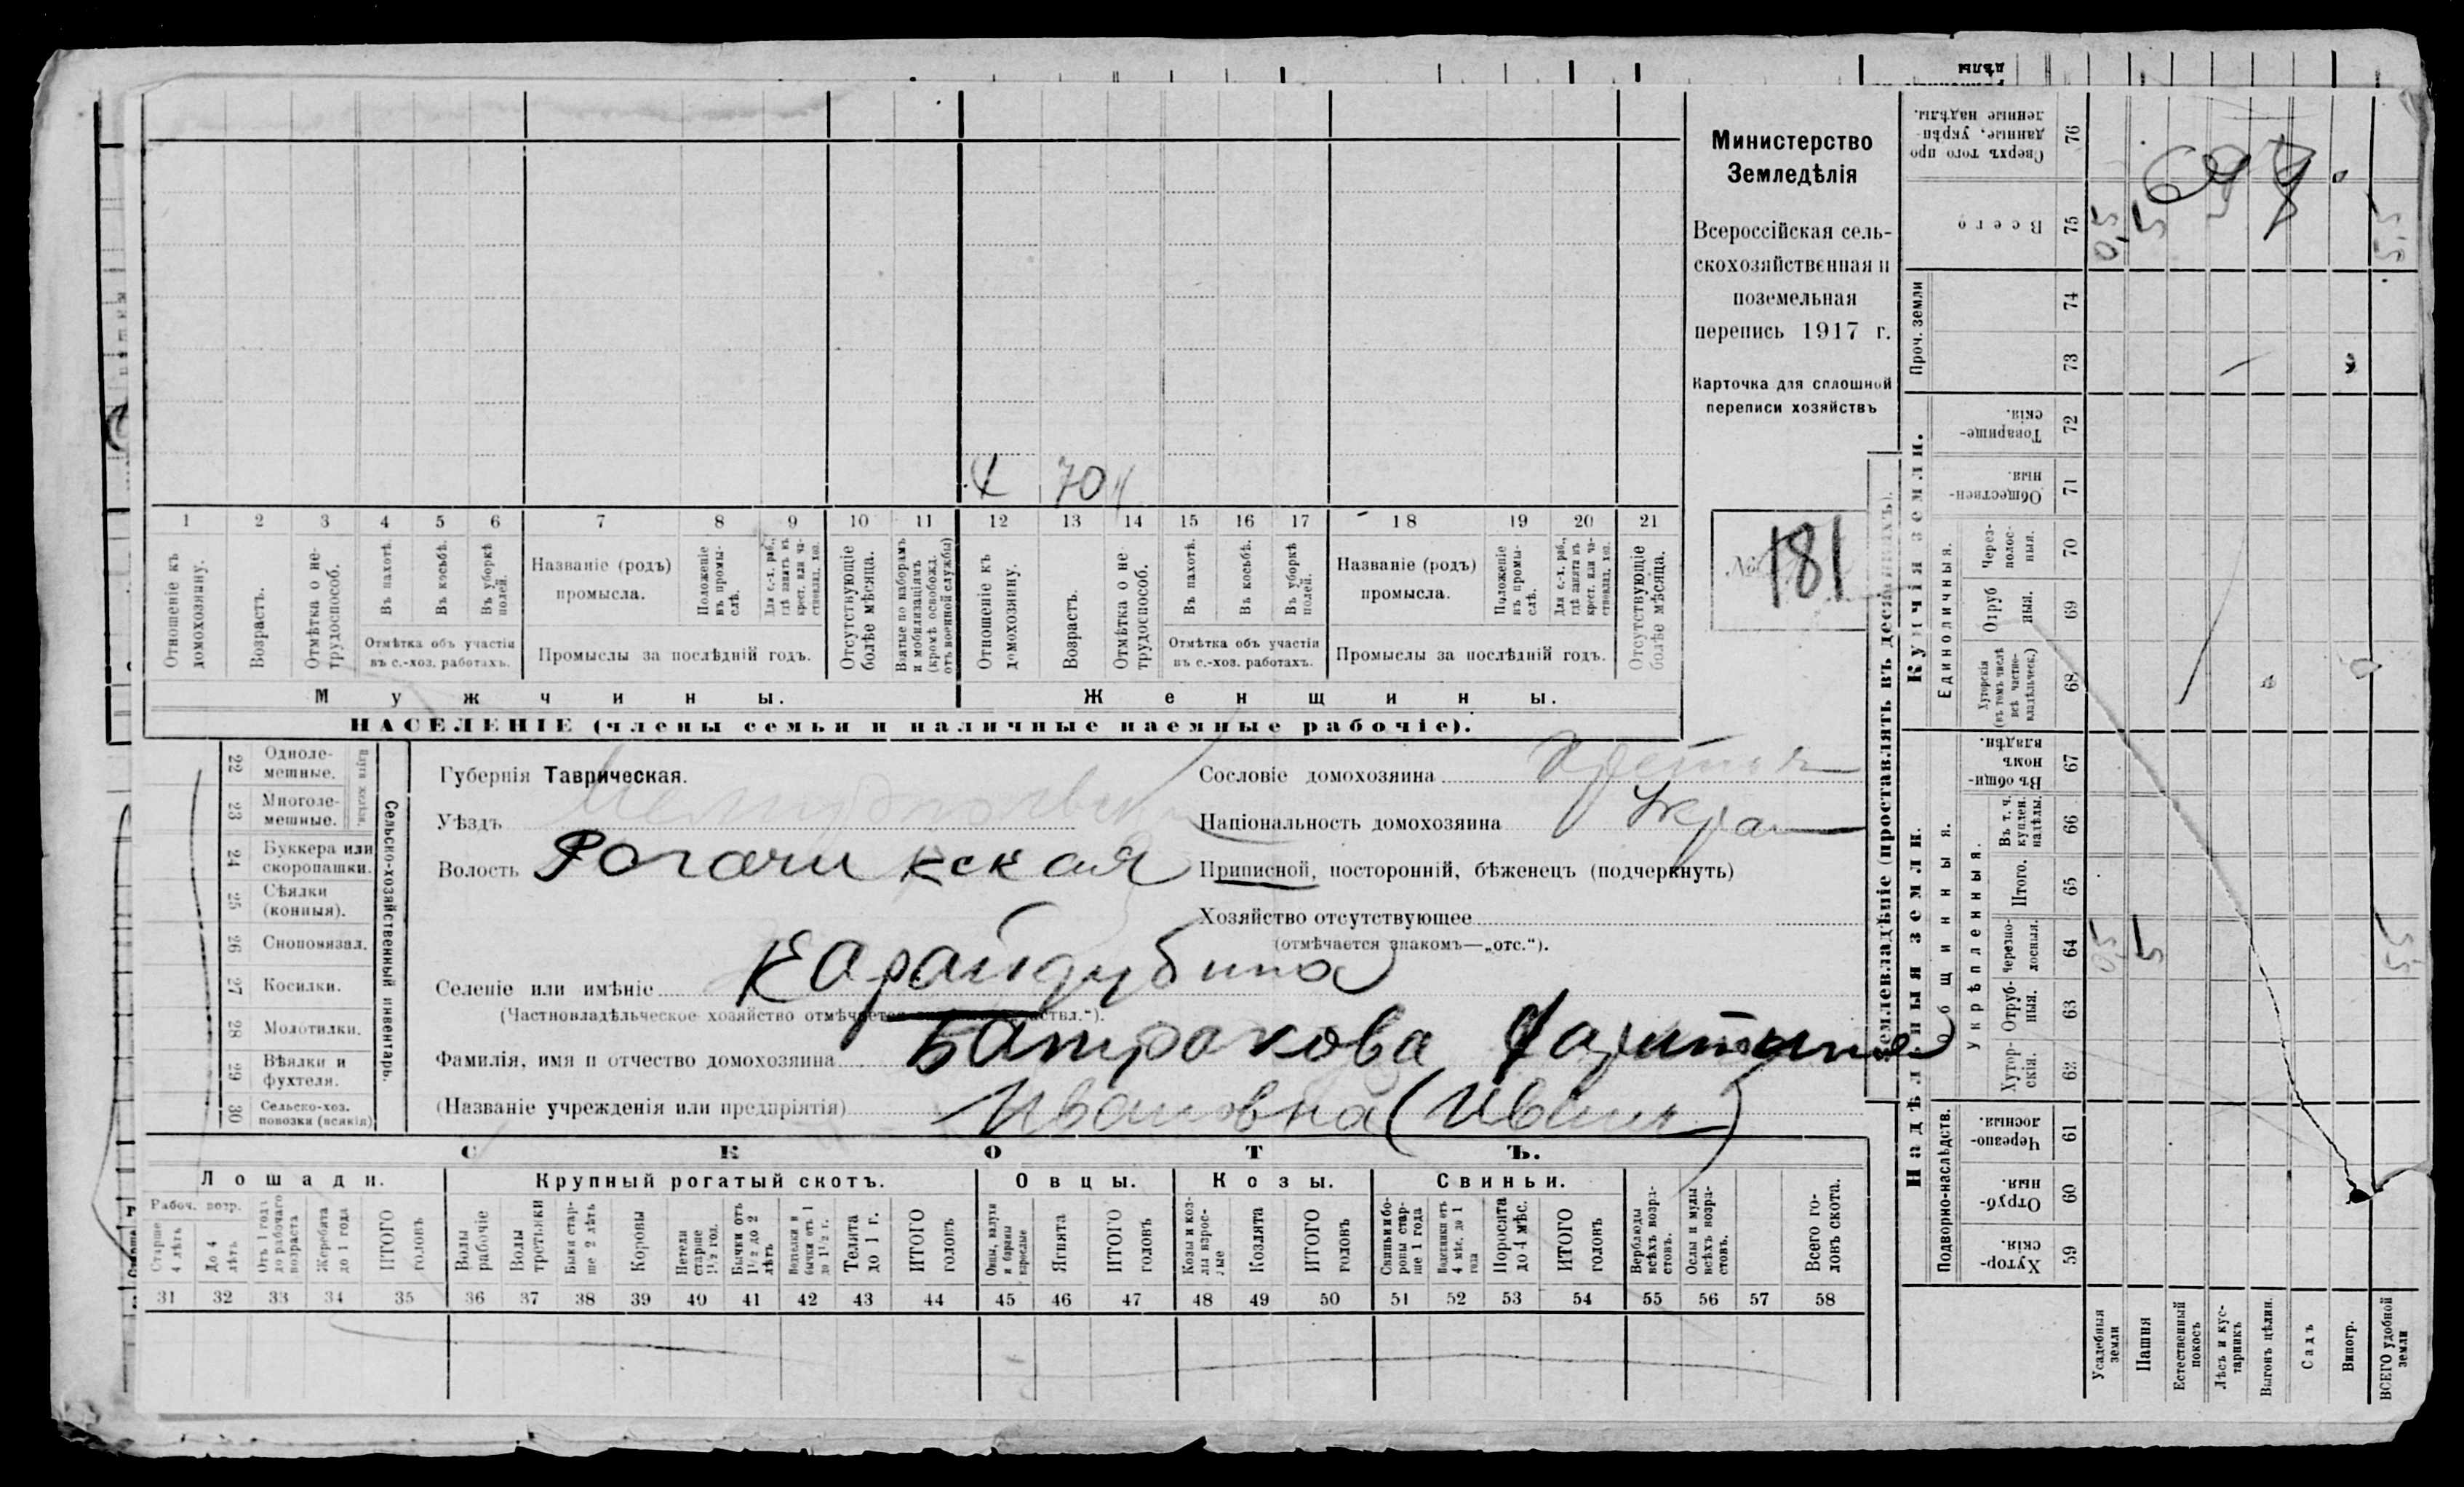 дѣлы
Министерство
Земледѣлія
Всероссійская сель-
скохозяйственная и
поземельная
перепись 1917 г.
Карточка для сплошной
переписи хозяйствъ
№ 181
х 70
1 2 3 4 5 6 7 8 9 10 11 12 13 14 15 16 17 18 19 20 21
Отношеніе къ домохозяину.
Возрастъ.
Отмѣтка о не-трудоспособ.
Въ пахотѣ.
Въ косьбѣ.
Въ уборкѣ полей.
Отмѣтка объ участіи
въ с.-хоз. работахъ.
Названіе (родъ)
промысла.
Положеніе въ промы-слѣ.
Для с.-х. раб., гдѣ занятъ въ крест. или ча-стновлад. хоз.
Промыслы за послѣдній годъ.
Отсутствующіе болѣе мѣсяца.
Взятые по наборамъ и мобилизаціямъ (кромѣ освобожд. отъ военной службы)
Отношеніе къ домохозяину.
Возрастъ.
Отмѣтка о не-трудоспособ.
Въ пахотѣ.
Въ косьбѣ.
Въ уборкѣ полей.
Отмѣтка объ участіи
въ с.-хоз. работахъ.
Названіе (родъ)
промысла.
Положеніе въ промы-слѣ.
Для с.-х. раб., гдѣ занята въ крест. или ча-стновлад. хоз.
Промыслы за послѣдній годъ.
Отсутствующіе болѣе мѣсяца.
Мужчины. Женщины.
НАСЕЛЕНІЕ (члены семьи и наличные наемные рабочіе).
22 Одноле-мешные.
23 Многоле-мешные.
24 Буккера или скоропашки.
25 Сѣялки (конныя).
26 Сноповязал.
27 Косилки.
28 Молотилки.
29 Вѣялки и фухтеля.
30 Сельско-хоз. повозки (всякія)
Сельско-хозяйственный инвентарь.
Губернія Таврическая.
Уѣздъ Мелитопольскій
Волость Рогачикская
Селеніе или имѣніе Карайдубина
(Частновладѣльческое хозяйство отмѣчается
Фамилія, имя и отчество домохозяина Батракова
(Названіе учрежденія или предпріятія) Ивановна (Ивин)
Сословіе домохозяина
Національность домохозяина Укра
Приписной, посторонній, бѣженецъ (подчеркнуть)
Хозяйство отсутствующее
(отмѣчается знакомъ—„отс.“).
СКОТЪ.
Лошади. Крупный рогатый скотъ. Овцы. Козы. Свиньи.
Рабоч. возр.
Старше 4 лѣтъ
До 4 лѣтъ
Отъ 1 года до рабочаго возраста
Жеребята до 1 года
ИТОГО головъ
Волы рабочіе
Волы третьяки
Быки стар-ше 2 лѣтъ
Коровы
Нетели старше 1½ год.
Бычки отъ 1½ до 2 лѣтъ
Телята до 1 г.
ИТОГО головъ
Овцы, валухи и бараны взрослые
Ягнята
ИТОГО головъ
Козы и коз-лы взрос-лые
Козлята
ИТОГО головъ
Свиньи и бо-ровы стар-ше 1 года
Подсвинки отъ 4 мѣс. до 1 года
Поросята до 4 мѣс.
ИТОГО головъ
Верблюды всѣхъ возра-стовъ.
Ослы и мулы всѣхъ возра-стовъ.
Всего го-ловъ скота.
31 32 33 34 35 36 37 38 39 40 41 42 43 44 45 46 47 48 49 50 51 52 53 54 55 56 57 58
Землевладѣніе (проставлять въ десятинахъ).
Купчія земли.
Надѣльныя земли.
Проч. земли
Единоличныя.
Общинныя.
Укрѣпленныя.
Подворно-наслѣдств.
Сверхъ того про-данные, укрѣп-ленные надѣлы. 76
Всего 75 0,5 5 5,5
74
73
Товарище-скія. 72
Обществен-ныя. 71
Через-полос-ныя. 70
Отруб-ныя. 69
Хуторскія (въ томъ числѣ всѣ частно-владѣльческ.) 68
Въ общин-номъ владѣн. 67
Въ т. ч. куплен. надѣлы. 66
Итого. 65
Черезпо-лосныя. 64 0,5 5 5,5
Отруб-ныя. 63
Хутор-скія. 62
Черезпо-лосныя. 61
Отруб-ныя. 60
Хутор-скія. 59
Усадебныя земли
Пашня
Естественный покосъ
Лѣсъ и кус-тарникъ
Выгонъ цѣлин.
Садъ
Виногр.
ВСЕГО удобной земли